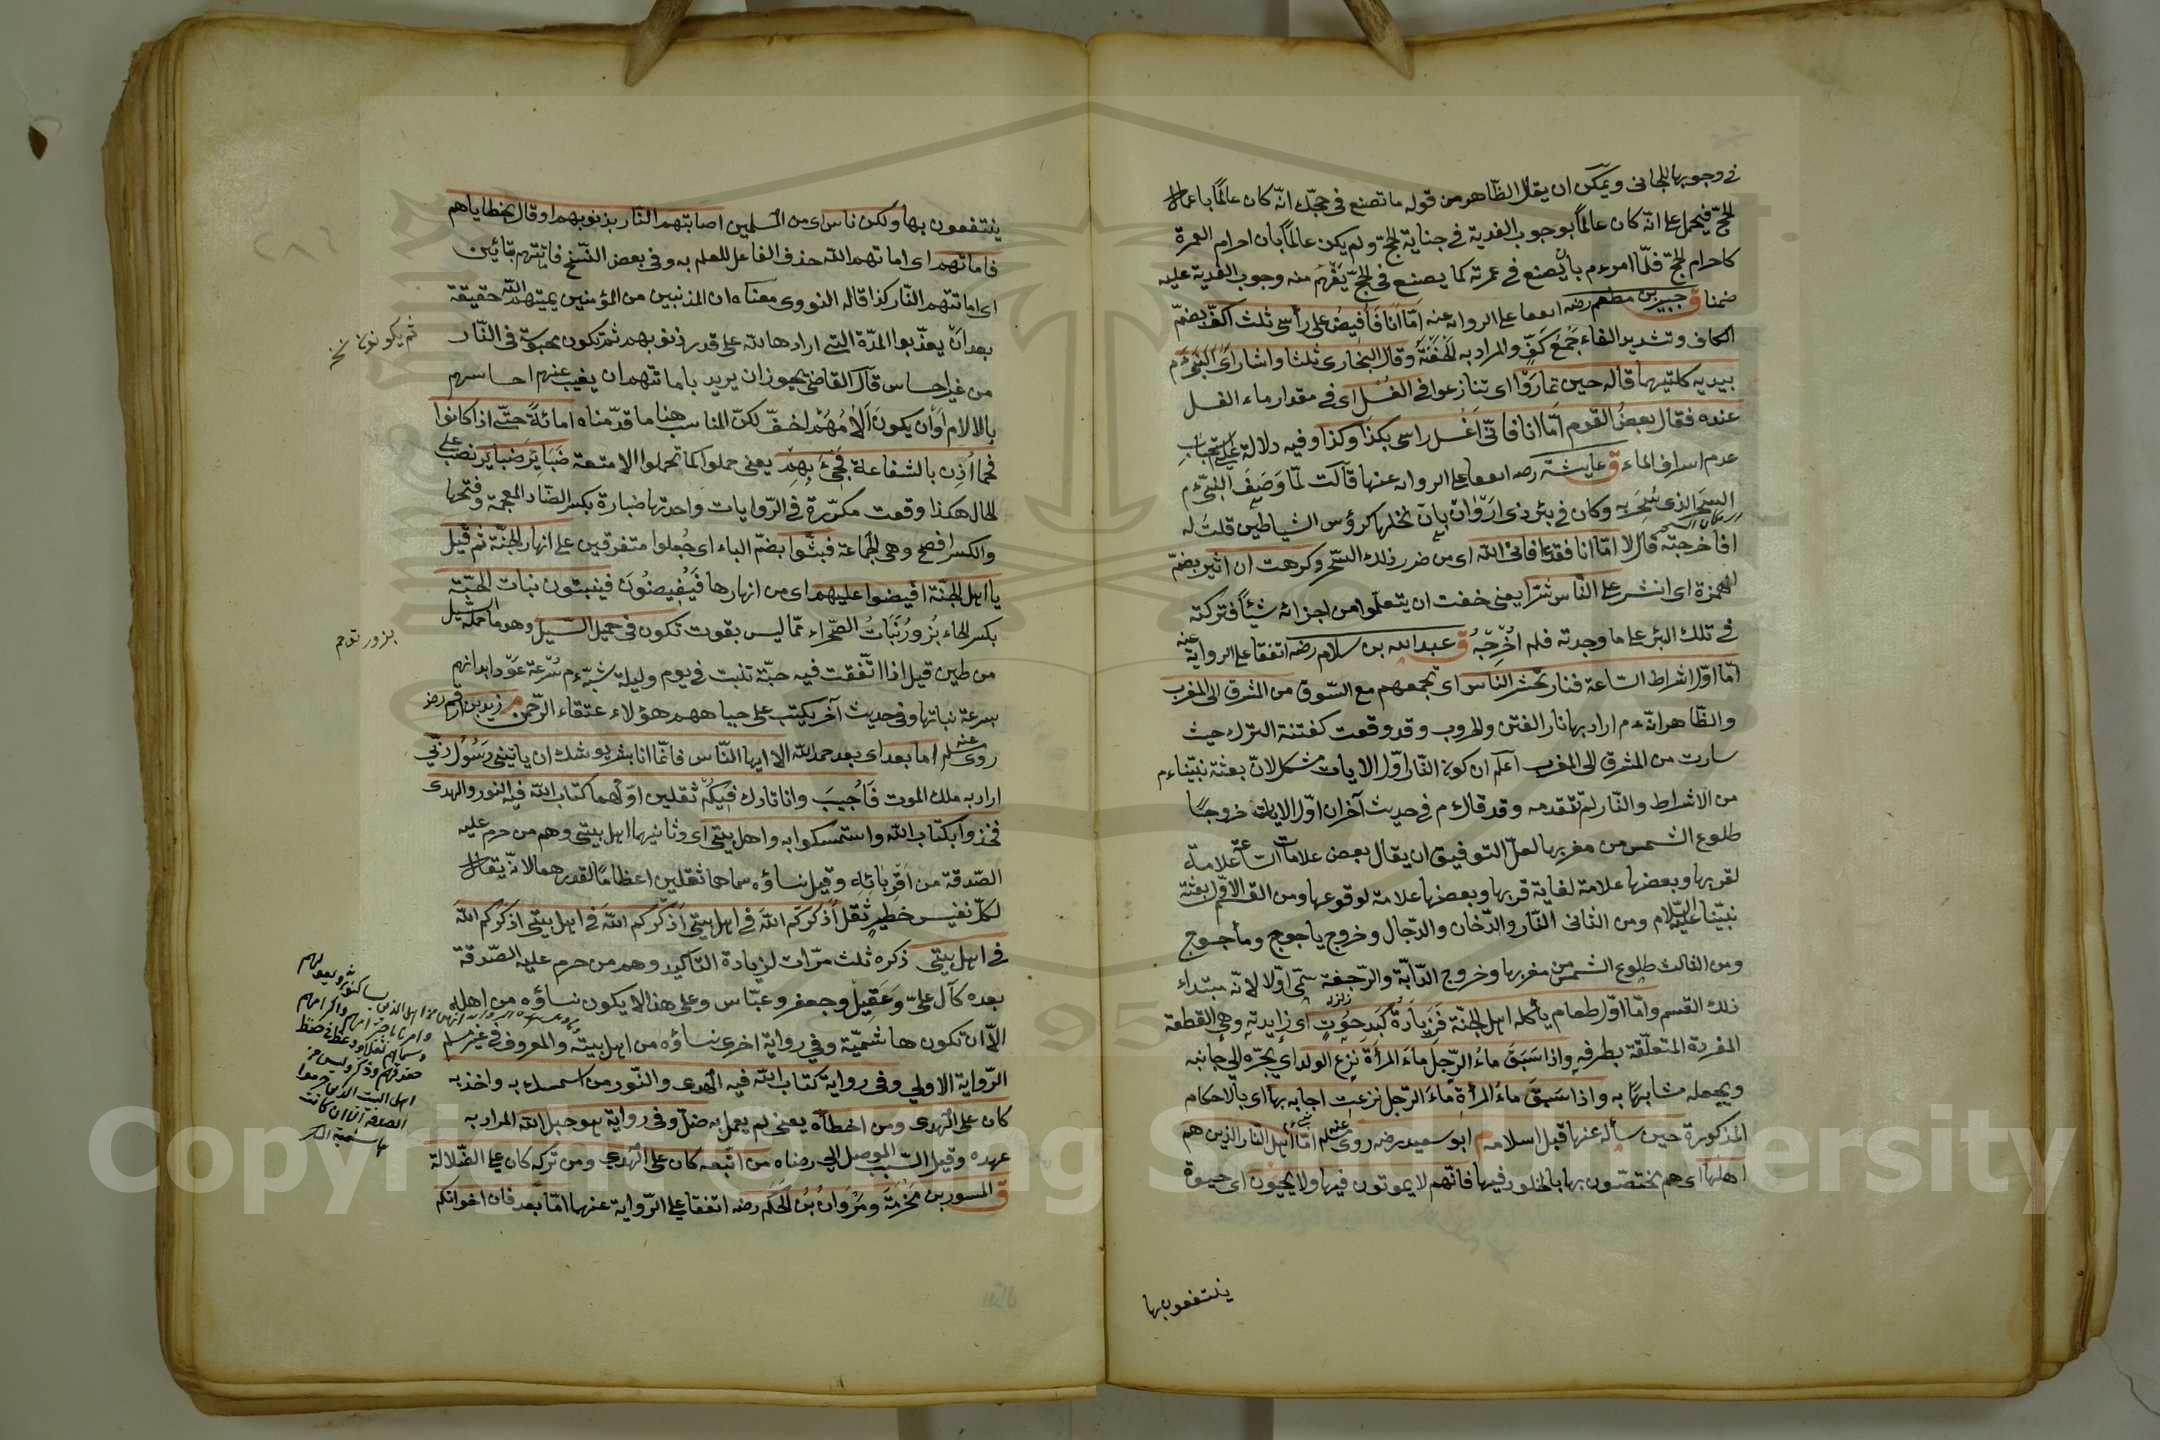 في وجوبها للجاني ويمكن ان يقال الظاهر من قوله ما تصنع في حجك انه كان عالما باعمال
الحج فيحمل على انه كان عالما بوجوب الفدية في جناية الحج ولم يكن عالما بان احرام العمرة
كاحرام الحج فلما امره م بان يصنع في عمرته كما يصنع في الحج يفهم منه وجوب الفدية عليه
ضمنا ق جبير بن مطعم رضه اتفقا على الرواية عنه اما انا فافيض على رأسى ثلث اكف بضم
الكاف وتشديد الفاء جمع كف والمراد به الحفنة وقال البخارى ثلثا واشار اى النبى م
بيديه كلتيهما قاله حين تماروا اى تنازعوا في الغسل اى في مقدار ماء الغسل
عنده فقال بعض القوم اما انا فانى اغسل راسى بكذا وكذا وفيه دلالة على استحباب
عدم اسراف الماء ق عايشة رضه اتفقا على الرواية عنها قالت لما وصف النبى م
السحر الذى سحر به وكان في بئر ذى اروان بان نخلها كرؤس الشياطين قلت له
افاخرجته قال لا اما انا فقد عافانى الله اى من ضرر ذلك السحر وكرهت ان اثير بضم
الهمزة اى انشر على الناس شرا يعنى خفت ان يتعلموا من اجزائه شيئا فتركته
في تلك البئر على ما وجدته فلم اخرجه ق عبد الله بن سلام رضه اتفقا على الرواية عنه
اما اول اشراط الساعة فنار تحشر الناس اى تجمعهم مع السوق من المشرق الى المغرب
والظاهر انه م اراد بها نار الفتن والحروب وقد وقعت كفتنة الترك حيث
سارت من المشرق الى المغرب اعلم ان كون النار اول الايات مشكل لان بعثة نبينا م
من الاشراط والنار لم تتقدمه وقد قال م في حديث آخر ان اول الايات خروجا
طلوع الشمس من مغربها لعل التوفيق ان يقال بعض علامات الساعة علامة
لقربها وبعضها علامة لغاية قربها وبعضها علامة لوقوعها ومن القسم الاول بعثة
نبينا عليه السلام ومن الثانى النار والدخان والدجال وخروج ياجوج ومأجوج
ومن الثالث طلوع الشمس من مغربها وخروج الدابة والرجفة سمى اولا لانه مبتداء
ذلك القسم واما اول طعام يأكله اهل الجنة فزيادة كبد حوت اى زايدته وهى القطعة
المفردة المتعلقة بطرفه واذا سبق ماء الرجل ماء المرأة نزع الولد اى يجره الى جانبه
ويجعله مشابها به واذا سبق ماء المرأة ماء الرجل نزعت اجابه بها اى بالاحكام
المذكورة حين سأله عنها قبل اسلامه م ابو سعيد رضه روى مسلم عنه اما اهل النار الذين هم
اهلها اى هم يختصون بها بالخلود فيها فانهم لا يموتون فيها ولا يحيون اى حيوة
ينتفعون بها
ينتفعون بها ولكن ناس اى من المسلمين اصابتهم النار بذنوبهم او قال بخطاياهم
فاماتهم اى اماتهم الله حذف الفاعل للعلم به وفى بعض النسخ فاماتتهم بتائين
اى اماتتهم النار كذا قاله النووى معناه ان المذنبين من المؤمنين يميتهم الله حقيقة
بعد ان يعذبوا المدة التى ارادها الله على قدر ذنوبهم ثم تكون محبوسة في النار
ثم يكونون نخ
من غير احساس قال القاضى يجوز ان يريد باماتتهم ان يغيب عنهم احساسهم
بالالام او ان يكون آلامهم اخف لكن المناسب هنا ما قدمناه اماتة حتى اذا كانوا
فحما اذن بالشفاعة فجئ بهم يعنى حملوا كما تحملوا الامتعة ضبائر ضبائر نصب على
الحال هكذا وقعت مكررة في الروايات واحدتها ضبارة بكسر الضاد المعجمة وفتحها
والكسر افصح وهى الجماعة فبثوا بضم الباء اى جعلوا متفرقين على انهار الجنة ثم قيل
يا اهل الجنة افيضوا عليهم اى من انهارها فيفيضون فينبتون نبات الحبة
بكسر الحاء بزور نبات الصحراء مما ليس بقوت تكون في حميل السيل وهو ما حمله السيل
من طين قيل اذا اتفقت فيه حبة تنبت في يوم وليلة شبه م سرعة عود ابدانهم
بسرعة نباتها وفى حديث آخر يكتب على جباههم هؤلاء عتقاء الرحمن م زيد بن ارقم رضه
روى مسلم عنه اما بعد اى بعد حمد الله الا ايها الناس فانما انا بشر يوشك ان ياتينى رسول ربى
اراد به ملك الموت فاجيب وانا تارك فيكم ثقلين اولهما كتاب الله فيه النور والهدى
فخذوا بكتاب الله واستمسكوا به واهل بيتى اى وثانيهما اهل بيتى وهم من حرم عليه
الصدقة من اقربائه وقيل نساؤه سماهما ثقلين اعظاما لقدرهما لانه يقال
لكل نفيس خطير ثقل اذكركم الله في اهل بيتى اذكركم الله في اهل بيتى اذكركم الله
في اهل بيتى ذكره ثلث مرات لزيادة التاكيد وهم من حرم عليه الصدقة
بعده كآل على وعقيل وجعفر وعباس وعلى هذا لا يكون نساؤه من اهله
الا ان تكون هاشمية وفى رواية اخرى نساؤه من اهل بيته والمعروف في غير مسلم
الرواية الاولى وفى رواية كتاب الله فيه الهدى والنور من استمسك به واخذ به
كان على الهدى ومن اخطأه يعنى لم يعمل به ضل وفى رواية هو حبل الله المراد به
عهده وقيل السبب الموصل الى رضاه من اتبعه كان على الهدى ومن تركه كان على الضلالة
ق المسور بن مخرمة ومروان بن الحكم رضه اتفقا على الرواية عنهما اما بعد فان اخوانكم
Copyright © King Saud University